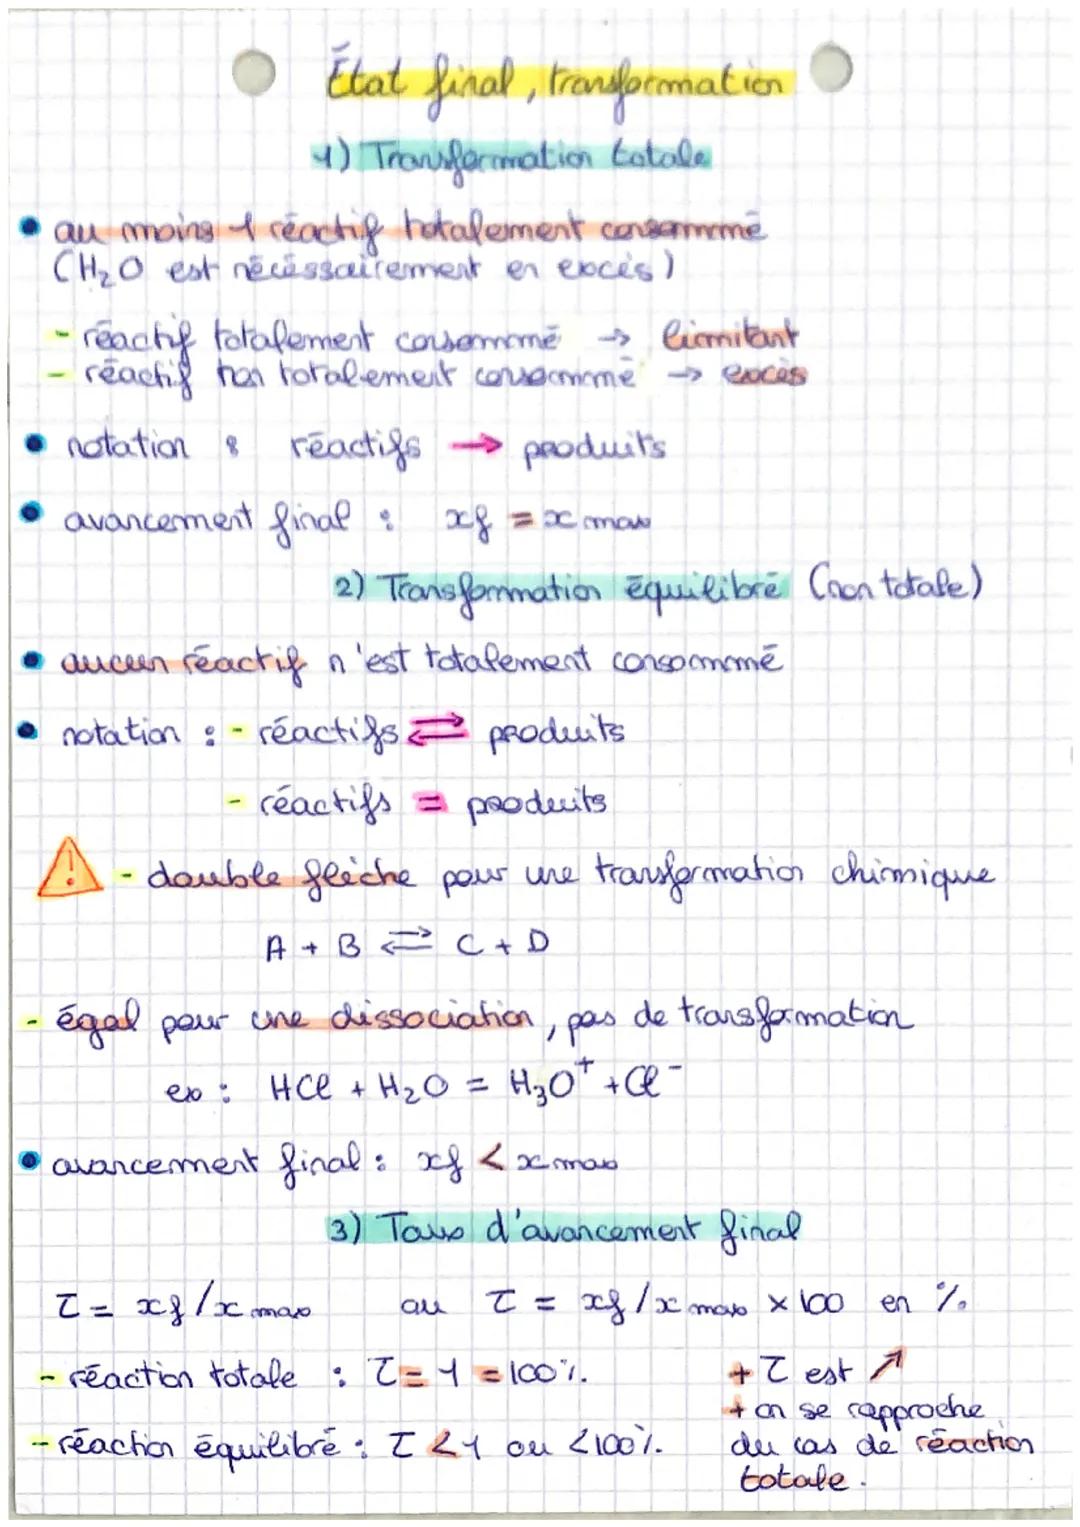 État final, transformation
1) Transformation totale
• au moins 1 réactif totalement consommé
(H₂O est nécéssairement en excès)
- réactif totalement consommé → limitant
- réactif non totalement consommé → excès
• notation : réactifs → produits
• avancement final : xf = x max
2) Transformation équilibré (non totale)
• aucun réactif n'est totalement consommé
• notation : - réactifs ⇄ produits
- réactifs = produits
⚠ - double flèche pour une transformation chimique
A + B ⇄ C + D
- égal pour une dissociation, pas de transformation
ex : HCl + H₂O = H₃O⁺ + Cl⁻
• avancement final : xf < x max
3) Taux d'avancement final
τ = xf / x max ou τ = xf / x max × 100 en %
- réaction totale : τ = 1 = 100%.
- réaction équilibré : τ < 1 ou < 100%.
+ τ est ↗
+ on se rapproche
du cas de réaction
totale.